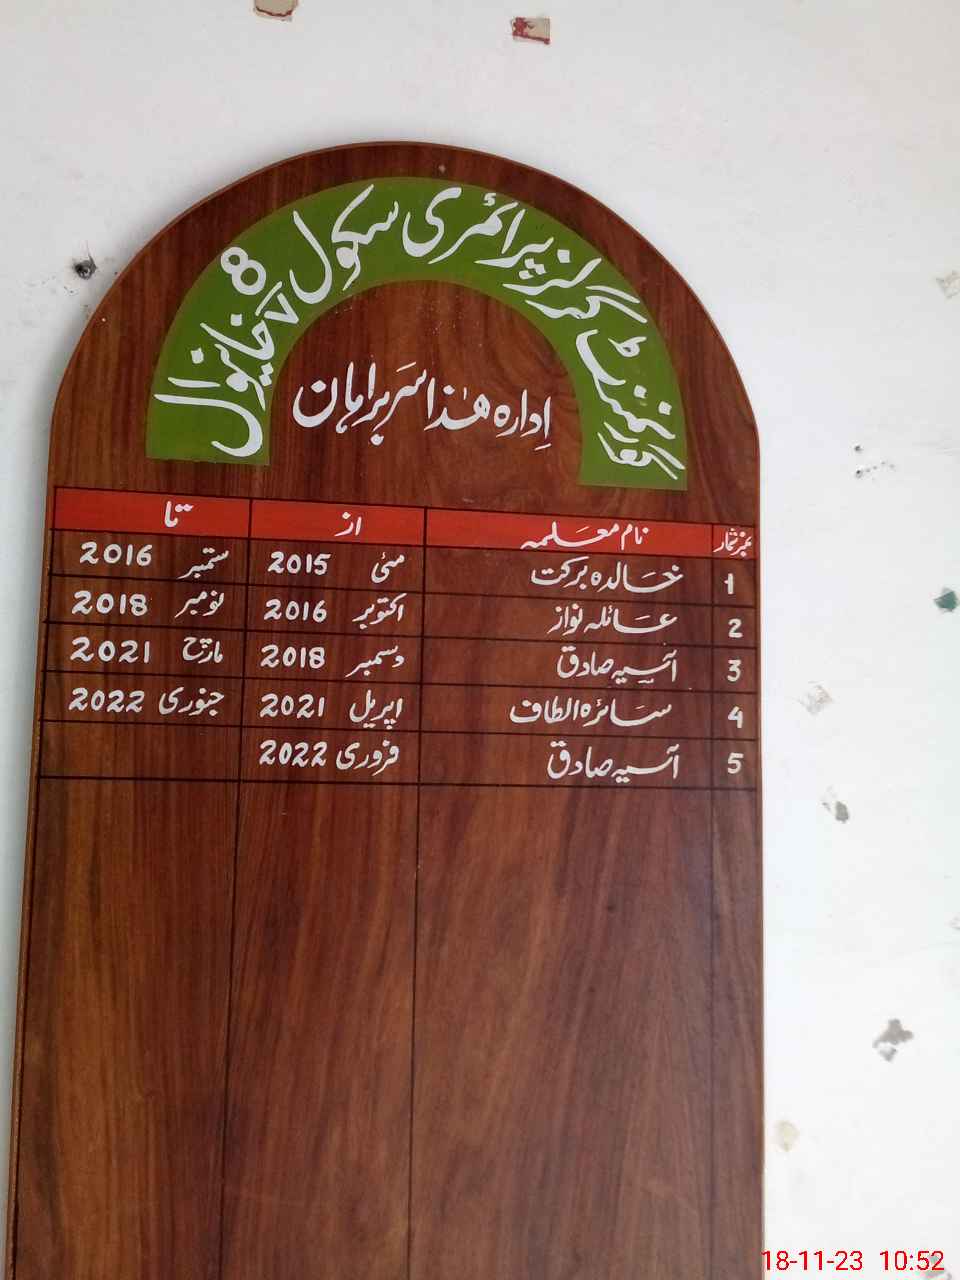 گورنمنٹ گرلز پرائمری سکول 8 V خانیوال
اِدارہ ھٰذا سربراہان
نمبر شمار نام معلمہ از تا
1 خالدہ برکت مئی 2015 ستمبر 2016
2 عائلہ نواز اکتوبر 2016 نومبر 2018
3 آسیہ صادق دسمبر 2018 مارچ 2021
4 سائرہ الطاف اپریل 2021 جنوری 2022
5 آسیہ صادق فروری 2022
18-11-23 10:52